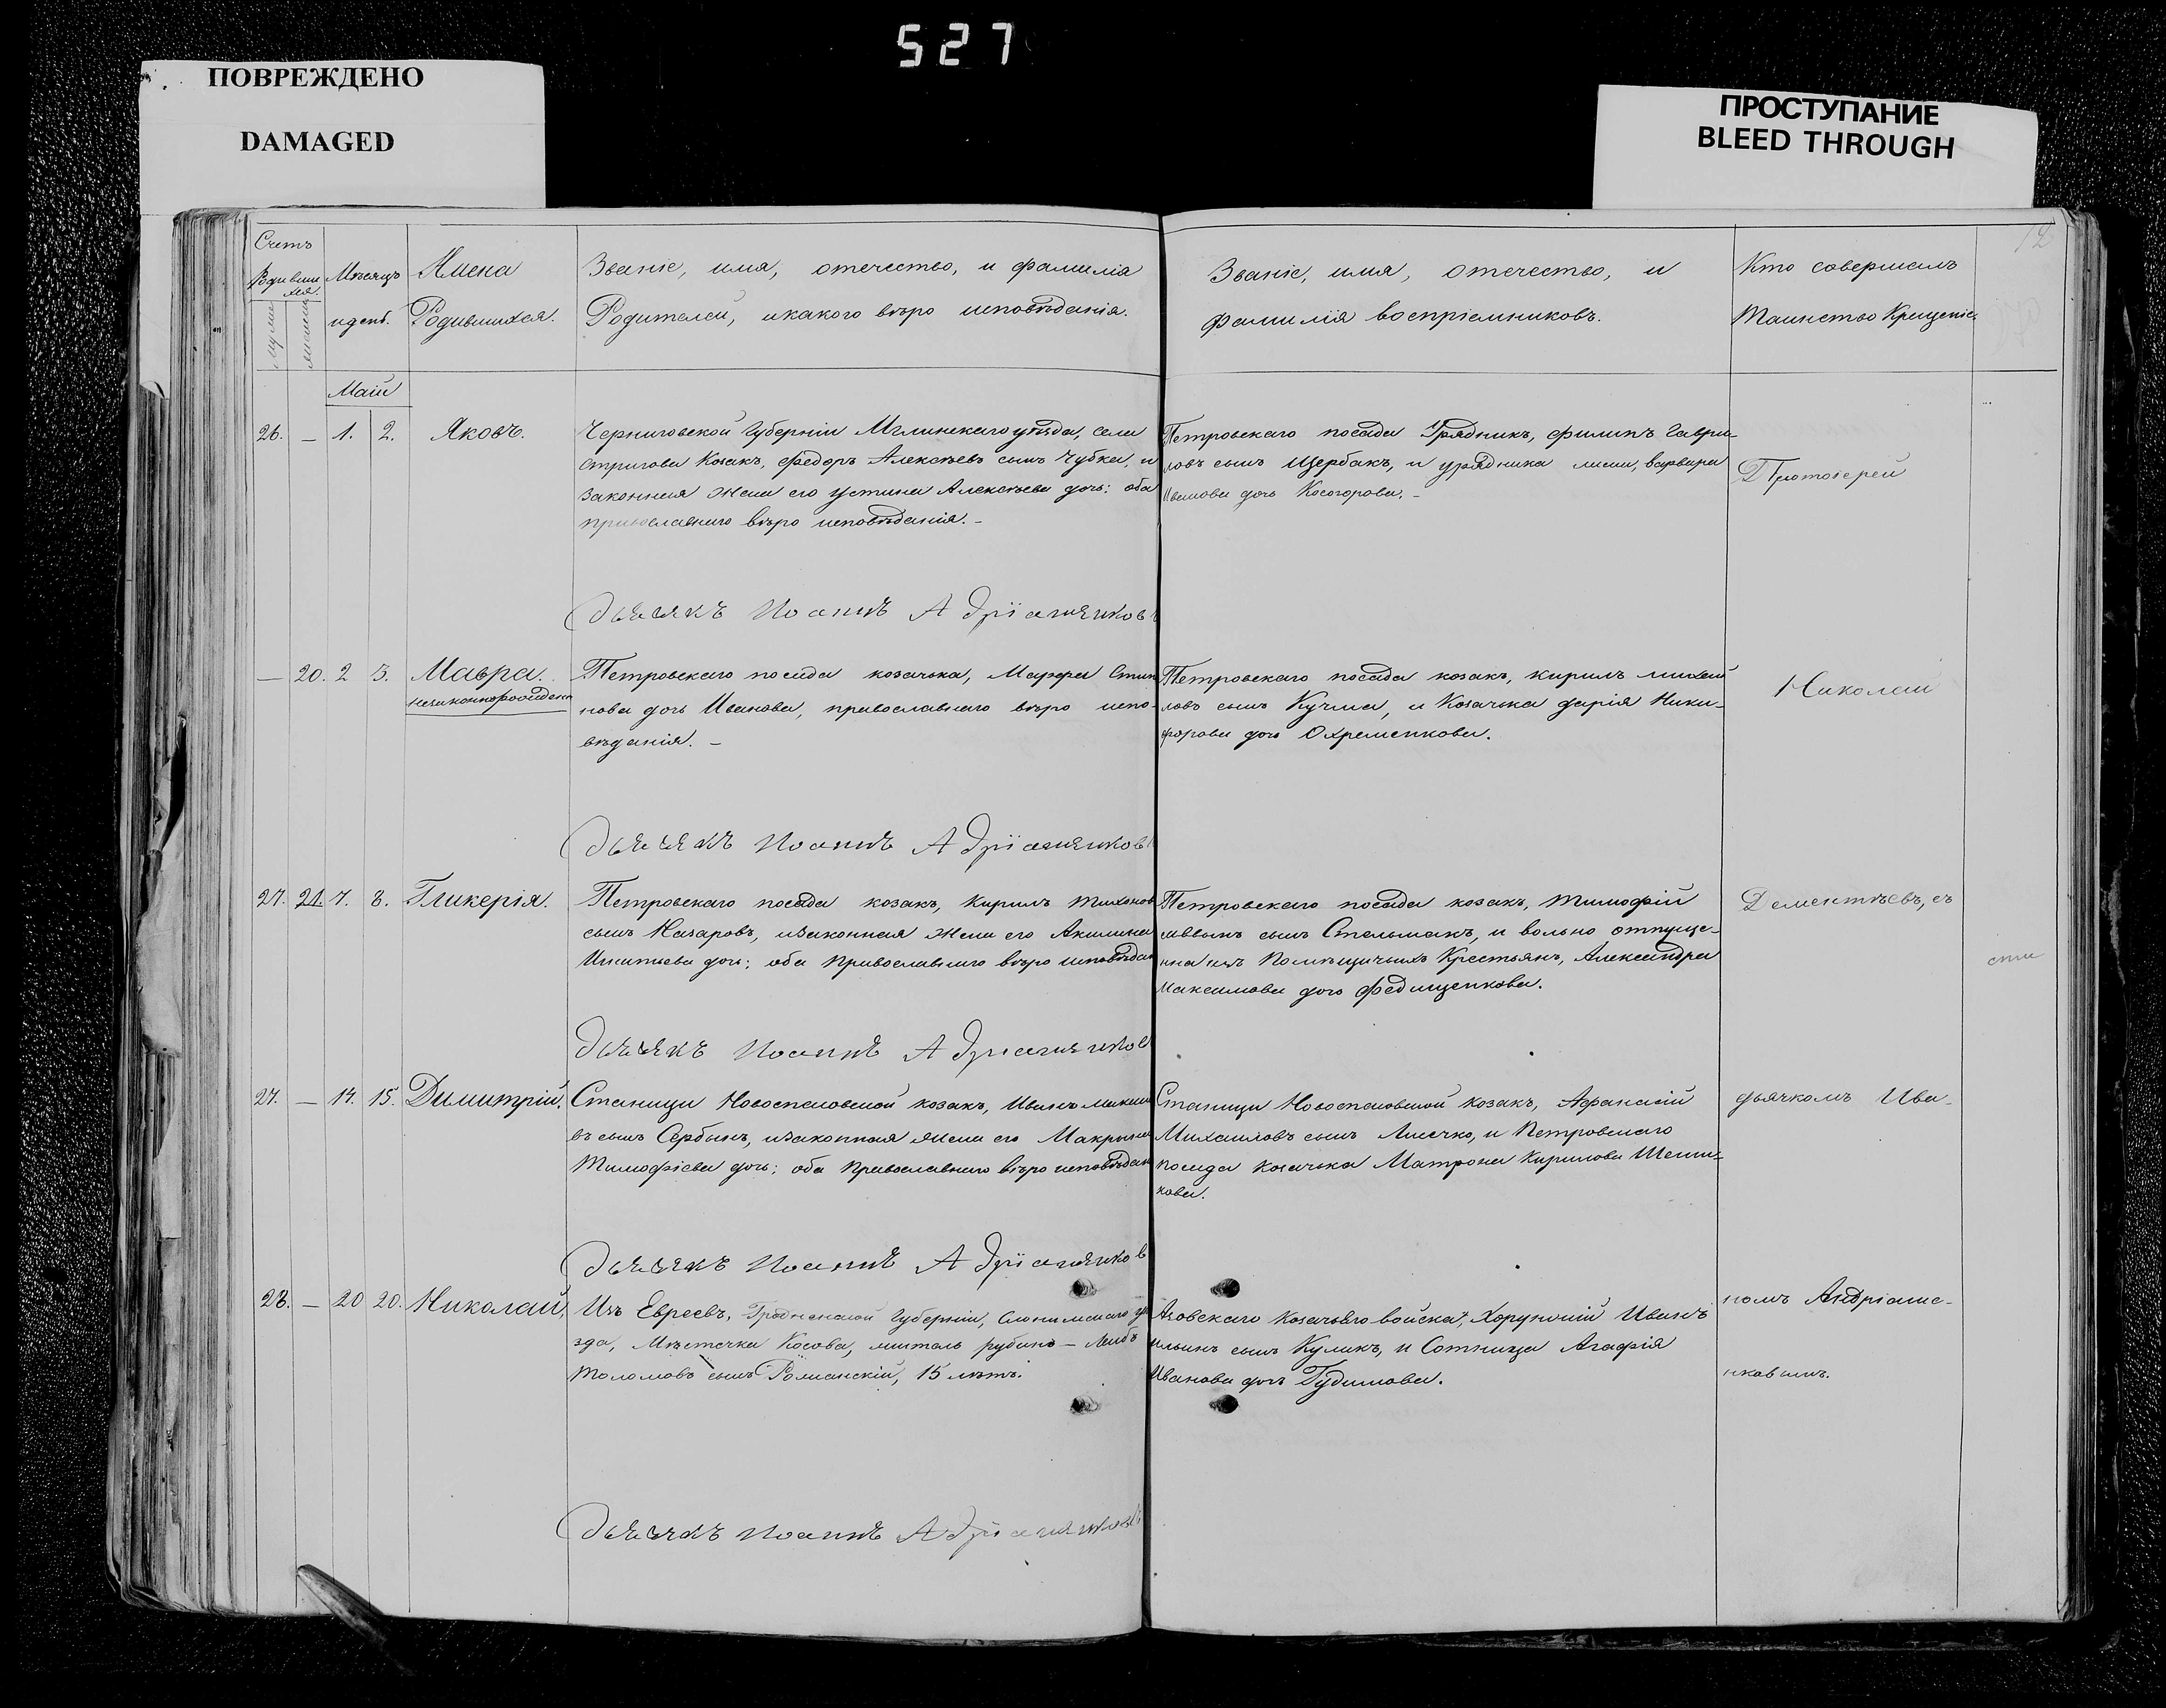 527
ПОВРЕЖДЕНО
DAMAGED
ПРОСТУПАНИЕ
BLEED THROUGH
Счетъ
Родивши
хся.
Мѣсяцъ
и день.
Имена
Родившихся.
Званіе, имя, отечество, и фамилія
Родителей, и какого вѣро исповѣданія.
Званіе, имя, отечество, и
фамилія воспріемниковъ.
Кто совершалъ
Таинство Крещенія
Май
26. — 1. 2. Яковъ.
Черниговской Губерніи Мглинскаго уѣзда, села
Стригова Козакъ, Федоръ Алексѣевъ сынъ Чубка, и
законная жена его Устина Алексѣева дочь; оба
православнаго вѣро исповѣданія. —
Петровскаго посада Урядникъ, Филипъ Гаври-
ловъ сынъ Щербакъ, и урядника жена, Варвара
Иванова дочь Косогорова. —
Протоіерей
Дьячекъ Иоаннъ Адріаненков
— 20. 2 3. Мавра.
незаконнорожденн
Петровскаго посада козачька, Марфа Степа
нова дочь Иванова, православнаго вѣро испо-
вѣданія. —
Петровскаго посада козакъ, Кирилъ Михай
ловъ сынъ Кучма, и Козачька Дарія Ники-
форова дочь Охременкова.
Николай
Дьячекъ Иоаннъ Адріаненков
27. 21. 7. 8. Гликерія.
Петровскаго посада козакъ, Кирилъ Тихонов
сынъ Назаровъ, и законная жена его Акилина
Игнатьева дочь; оба Православнаго вѣро исповѣдан
Петровскаго посада козакъ, Тимофій
сынъ Стельмахъ, и вольно отпуще-
нна изъ Помѣщичьихъ Крестьянъ, Александра
Максимова дочь Федищенкова.
Дементѣевъ, съ
Дьячекъ Иоаннъ Адріаненков
27. — 14. 15. Димитрій.
Станицы Новоспасовской козакъ, Иванъ Макси
въ сынъ Сербинъ, и законная жена его Макрина
Тимофіева дочь; оба Православнаго вѣро исповѣдан
Станицы Новоспасовской козакъ, Афанасій
Михаиловъ сынъ Лисечко, и Петровскаго
посада козачька Матрона Кирилова
кова.
дьячкомъ Ива-
Дьячекъ Иоаннъ Адріаненков
28. — 20 20. Николай,
Изъ Евреевъ, Гродненской Губерніи, Слонимскаго уѣ
зда, Мѣстечка Косова, Рубинъ — Лейбъ
сынъ 15 лѣтъ.
Азовскаго козачьяго войска, Хорунжій Иванъ
Ильинъ сынъ Куликъ, и Сотница Агафія
Иванова дочь Гудимова.
номъ Андріане-
нковымъ.
Дьячекъ Иоаннъ Адріаненков